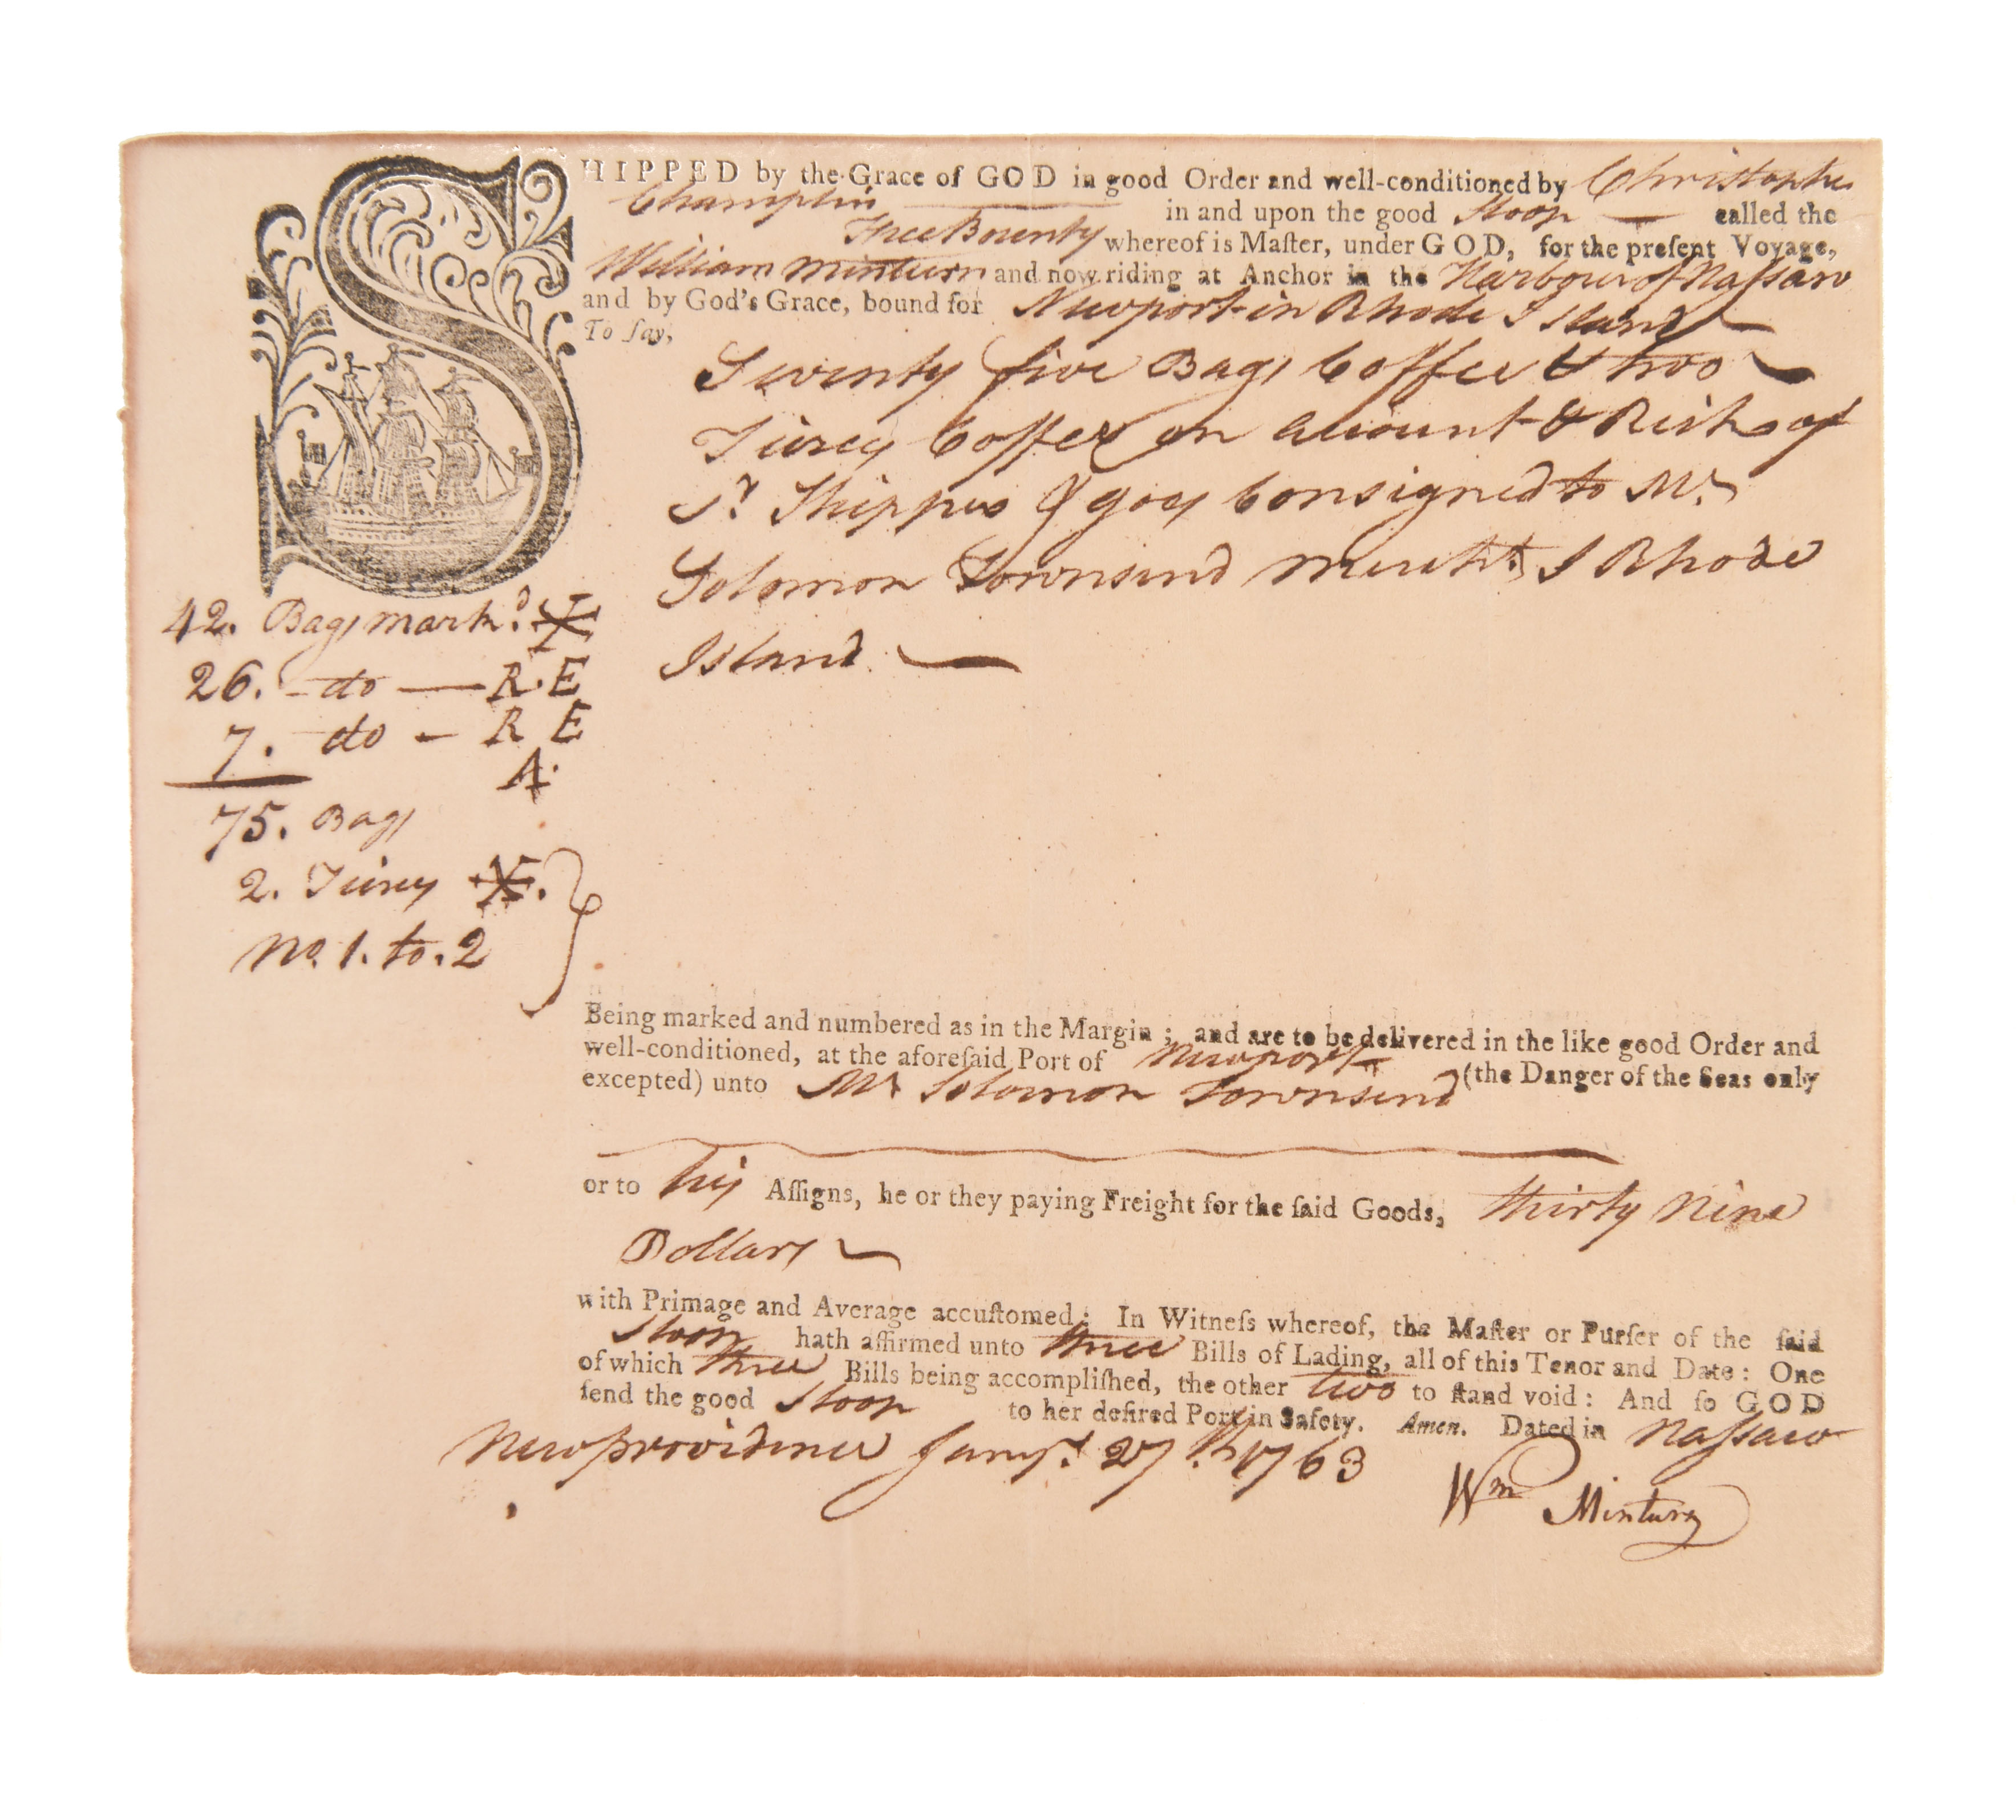 SHIPPED by the Grace of GOD in good Order and well-conditioned by Christopher
Champlin in and upon the good Sloop called the
Thee Bounty whereof is Maſter, under GOD, for the preſent Voyage,
William Minturn and now riding at Anchor in the Harbour of Naſsaw
and by God's Grace, bound for Newport in Rhode Island
To ſay,
Twenty five Bags Coffee & two
Tierces Coffee on account & Risk of
Sr. Shipper & goes Consigned to Mr.
Solomon Townsend Mercht. I Rhode
Island
42. Bags mark.d
26. do R. E
7. do R E
A.
75. Bags
2. Tierces
No. 1. to. 2
Being marked and numbered as in the Margin; and are to be delivered in the like good Order and
well-conditioned, at the aforeſaid Port of Newport (the Danger of the Seas only
excepted) unto Mr Solomon Townsend
or to his Aſſigns, he or they paying Freight for the ſaid Goods, thirty Nine
Dollars
with Primage and Average accuſtomed: In Witneſs whereof, the Maſter or Purſer of the ſaid
Sloop hath affirmed unto three Bills of Lading, all of this Tenor and Date: One
of which three Bills being accompliſhed, the other two to ſtand void: And ſo GOD
ſend the good Sloop to her deſired Port in Safety. Amen. Dated in Naſsaw
Newprovidence Jany. 27th. 1763
Wm Minturn